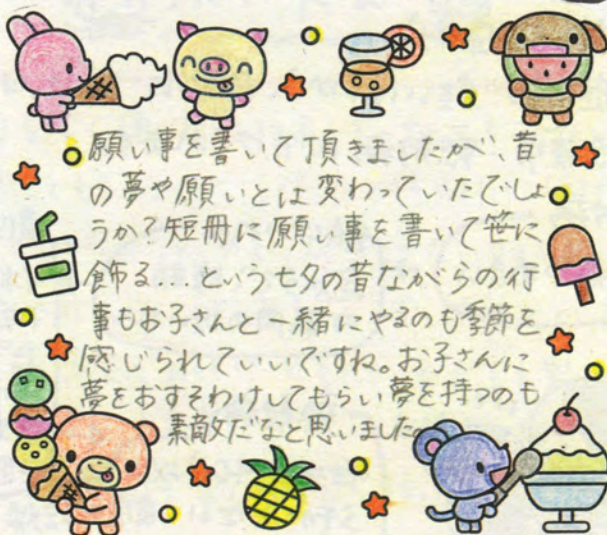 願い事を書いて頂きましたが、昔
の夢や願いとは変わっていたでしょ
うか?短冊に願い事を書いて笹に
飾る...という七夕の昔ながらの行
事もお子さんと一緒にやるのも季節を
感じられていいですね。お子さんに
夢をおすそわけしてもらい夢を持つのも
素敵だなと思いました。